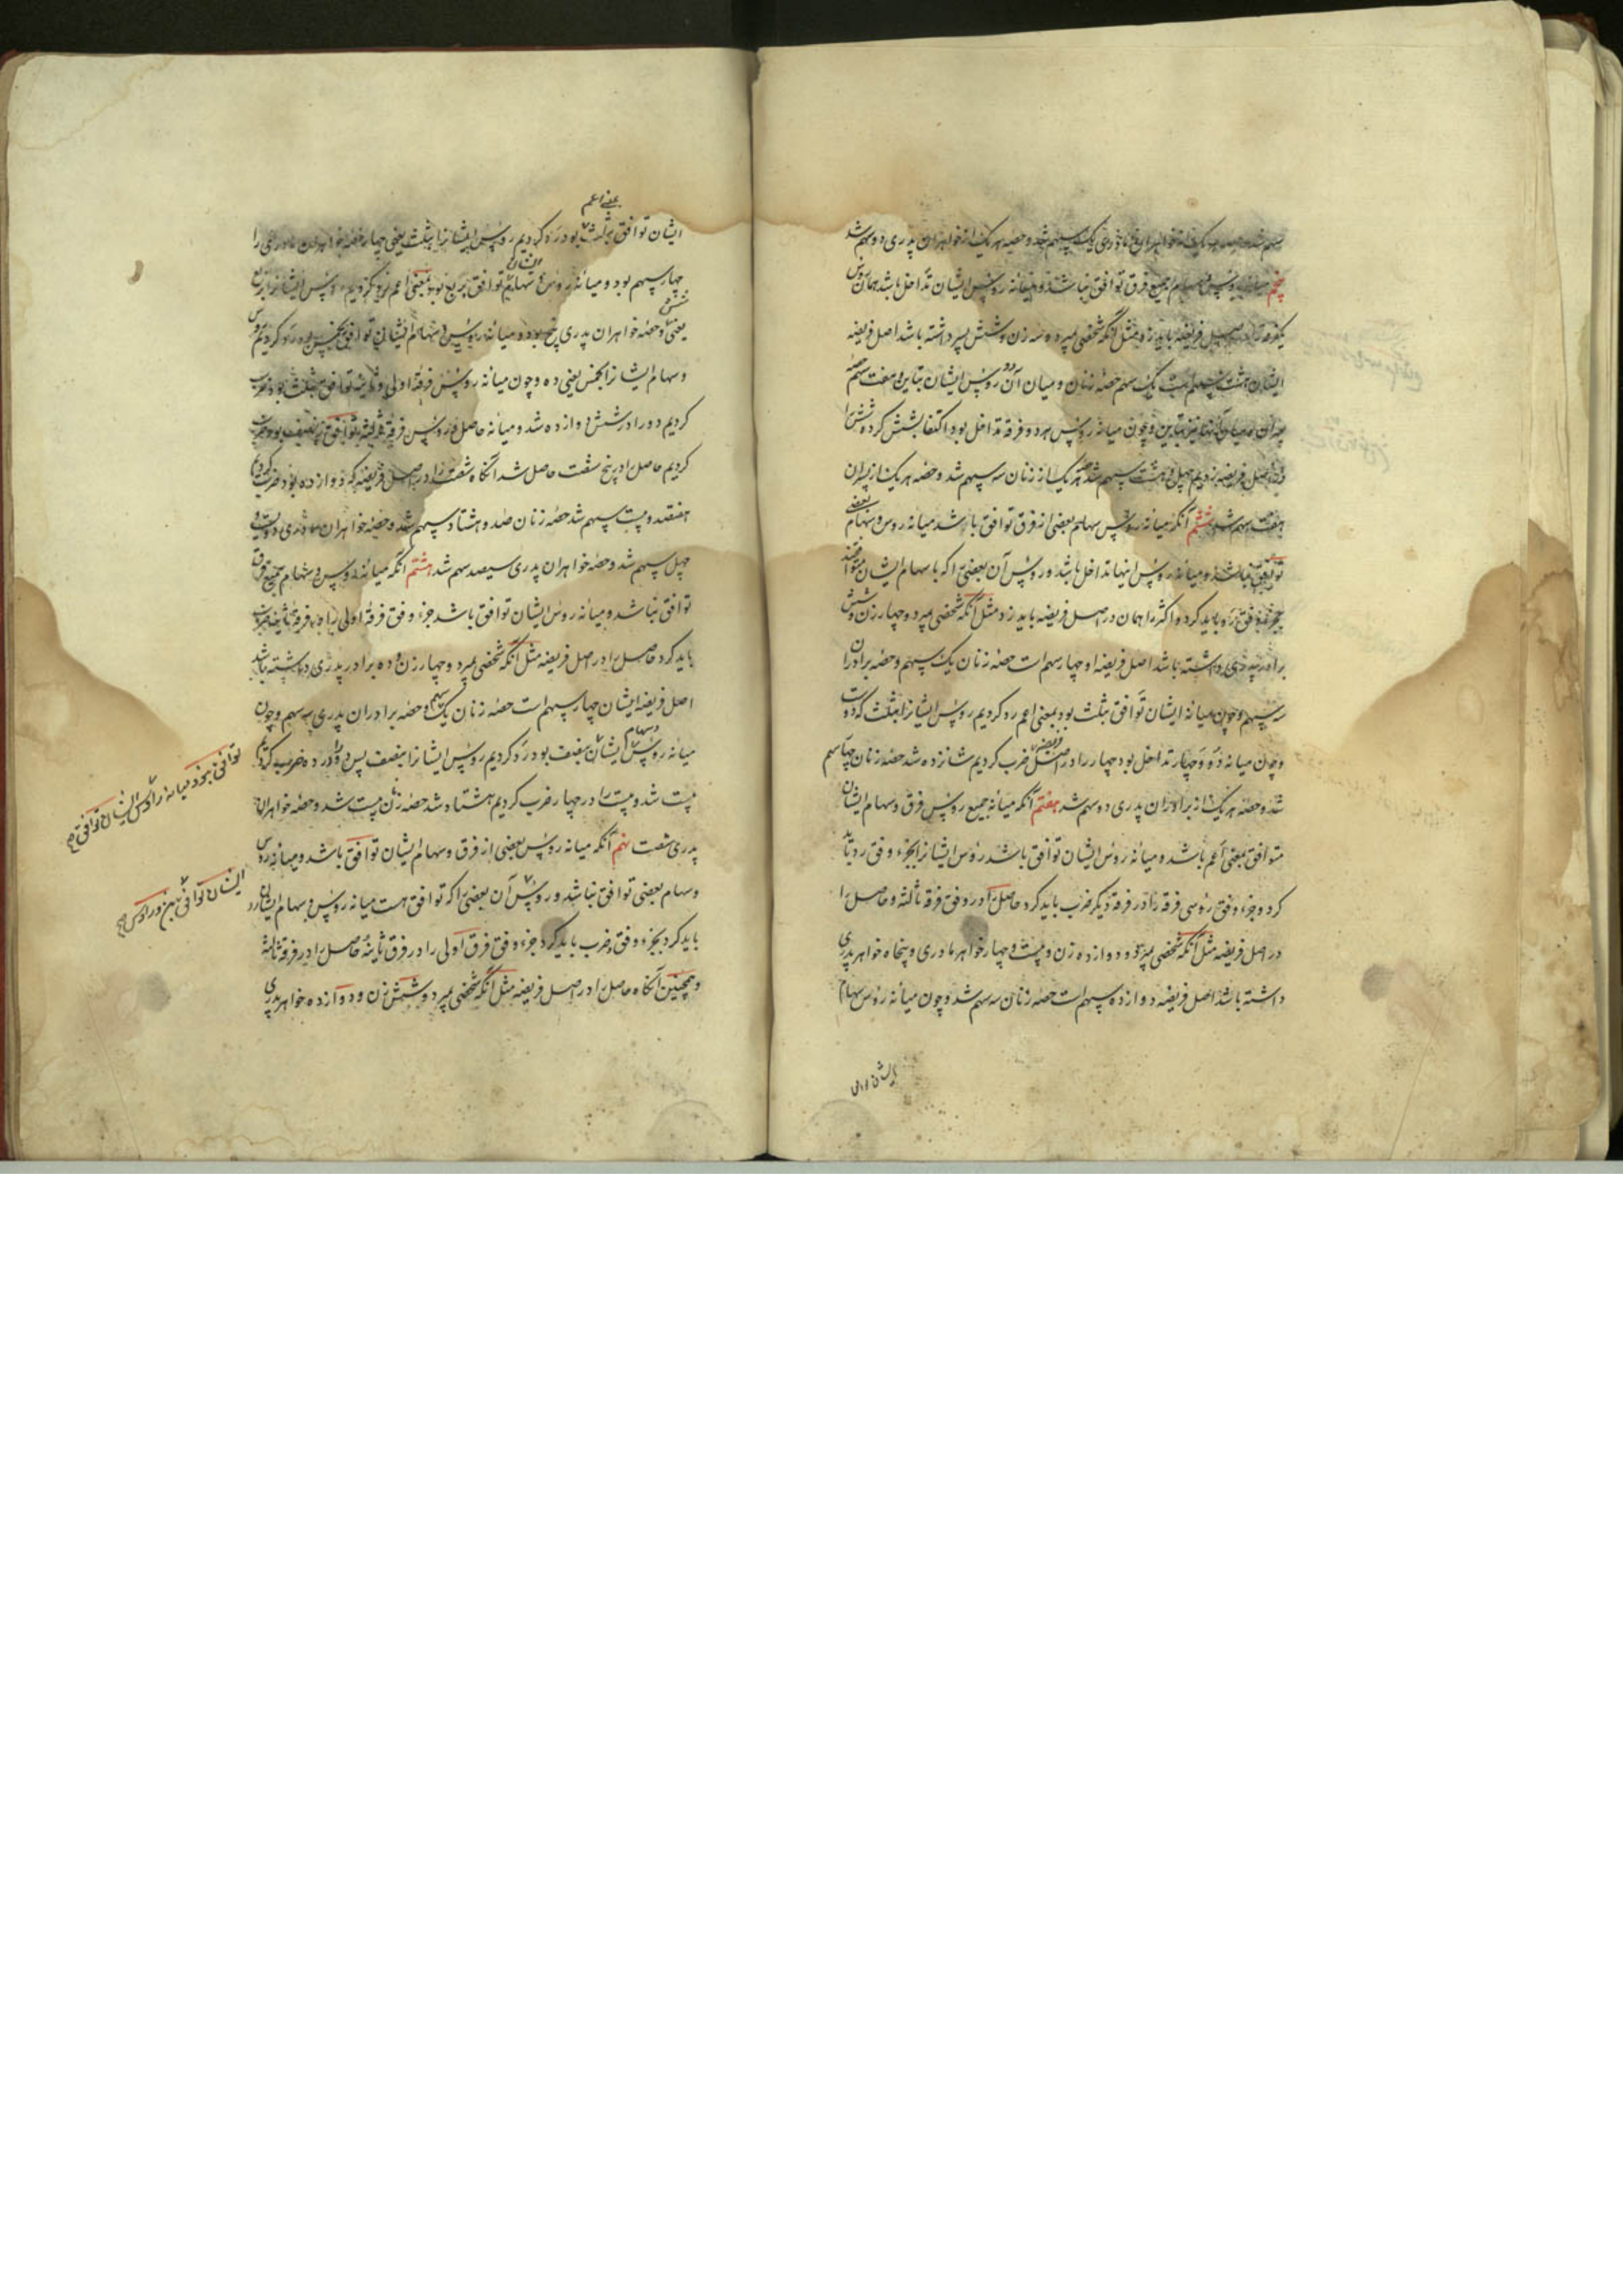 سهم شد و حصه هر یک از خواهران مادری یک سهم شد و حصه هر یک از خواهران پدری دو سهم شد
پنجم میانه روس و سهام جمیع فرق توافق نباشد و میانه روس ایشان تداخل باشد همان روس
یکفرقه را در اصل فریضه باید زد مثل آنکه شخصی بمیرد و سه زن و شش پسر داشته باشد اصل فریضه
ایشان هشت سهم است یک سهم حصه زنان و میان آن و روس ایشان تباین و هفت سهم حصه
پسران و میان آنها نیز تباین و چون میانه روس هر دو فرقه تداخل بود اکتفا بشش کرده شش را
در اصل فریضه زدیم چهل و هشت سهم شد هر یک از زنان سه سهم شد و حصه هر یک از پسران
هفت سهم شد ششم آنکه میانه روس و سهام بعضی از فرق توافق باشد میانه روس و سهام بعضی
توافق نباشد و میانه روس اینها تداخل باشد و روس آن بعضی را که با سهام ایشان متوافقند
بجزء وفق رد باید کرد و اکثر را همان در اصل فریضه باید زد مثل آنکه شخصی بمیرد و چهار زن و شش
برادر پدری داشته باشد اصل فریضه او چهار سهم است حصه زنان یک سهم و حصه برادران
سه سهم و چون میانه ایشان توافق بثلث بود بمعنی اعم رد کردیم روس ایشانرا بثلث که دو است
و چون میانه دو و چهار تداخل بود چهار را در اصل فریضه ضرب کردیم شانزده شد حصه زنان چهار سهم
شد و حصه هر یک از برادران پدری دو سهم شد هفتم آنکه میانه جمیع روس فرق و سهام ایشان
متوافق بمعنی اعم باشد و میانه روس ایشان توافق باشد روس ایشانرا بجزء وفق رد باید
کرد و جزء وفق روسی فرقه را در فرقه دیگر ضرب باید کرد حاصل را در وفق فرقه ثالثه و حاصل را
در اصل فریضه مثل آنکه شخصی بمیرد و دوازده زن و بیست و چهار خواهر مادری و پنجاه خواهر پدری
داشته باشد اصل فریضه دوازده سهم است حصه زنان سه سهم شد و چون میانه روس سهام
بمعنی اعم
ایشان توافق بثلث بود رد کردیم روس ایشانرا بثلث یعنی چهار حصه خواهران مادری را
چهار سهم بود و میانه روس و سهام ایشان توافق بربع بود بمعنی اعم رد کردیم روس ایشانرا بربع
یعنی شش و حصه خواهران پدری پنج بود و میانه روس و سهام ایشان توافق بخمس بود رد کردیم روس
و سهام ایشانرا بخمس یعنی ده و چون میانه روس فرقه اولی و ثانیه توافق بثلث بود ضرب
کردیم دو را در شش دوازده شد و میانه حاصل و روس فرقه ثالثه توافق بنصف بود ضرب
کردیم حاصل را در پنج شصت حاصل شد آنگاه شصت را در اصل فریضه که دوازده بود ضرب کردیم
هفتصد و بیست سهم شد حصه زنان صد و هشتاد سهم شد و حصه خواهران مادری دویست و
چهل سهم شد و حصه خواهران پدری سیصد سهم شد هشتم آنکه میانه روس و سهام جمیع فرق
توافق نباشد و میانه روس ایشان توافق باشد جزء وفق فرقه اولی را در فرقه ثانیه ضرب
باید کرد حاصل را در اصل فریضه مثل آنکه شخصی بمیرد و چهار زن و ده برادر پدری داشته باشد
اصل فریضه ایشان چهار سهم است حصه زنان یک سهم و حصه برادران پدری سه سهم و چون
میانه روس و سهام ایشان بنصف بود رد کردیم روس ایشانرا بنصف پس دو را در ده ضرب کردیم
بیست شد و بیست را در چهار ضرب کردیم هشتاد شد حصه زنان بیست شد و حصه خواهران
پدری شصت نهم آنکه میانه روس بعضی از فرق و سهام ایشان توافق باشد و میانه روس
و سهام بعضی توافق نباشد و روس آن بعضی را که توافق هست میانه روس و سهام ایشان رد
باید کرد بجزء وفق و ضرب باید کرد جزء وفق فرق اولی را در فرق ثانیه حاصل را در فرقه ثالثه
و همچنین آنگاه حاصل را در اصل فریضه مثل آنکه شخصی بمیرد و شش زن و دوازده خواهر پدری